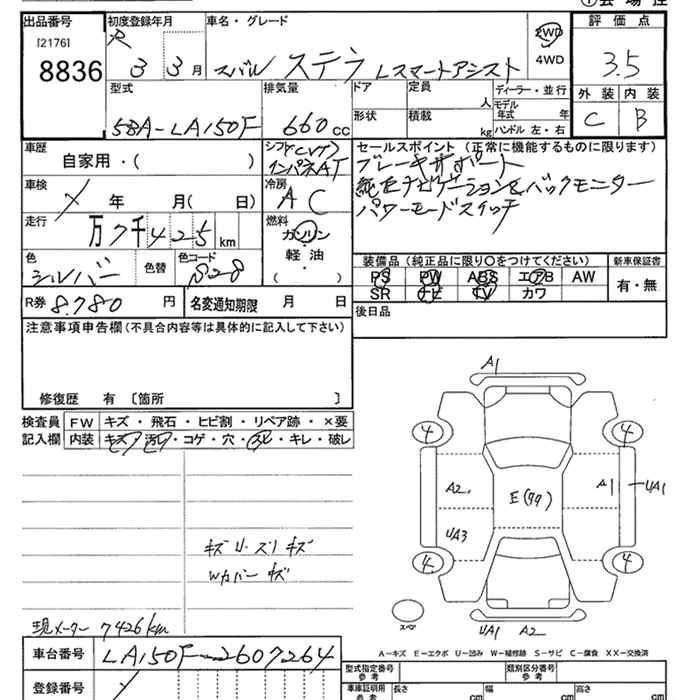 ①会場控
出品番号
[2176]
8836
初度登録年月
R 3 3月
車名・グレード
スバル ステラ Lスマートアシスト
2WD
4WD
評価点
3.5
外装 内装
C B
型式
5BA-LA150F
排気量
660cc
ドア
形状
定員
人
積載
kg
ディーラー・並行
モデル年式 年
ハンドル 左・右
車歴
自家用・( )
シフト CVT
インパネAT
セールスポイント(正常に機能するものに限ります)
ブレーキサポート
純正ナビゲーション&バックモニター
パワーモードスイッチ
車検
年 月( 日)
冷房
AC
走行
万7千425km
燃料
ガソリン
軽・油
( )
色
シルバー
色替
色コード
S28
装備品(純正品に限り〇をつけてください)
PS PW ABS エアB AW
SR ナビ TV カワ
新車保証書
有・無
R券 8.780 円
名変通知期限 月 日
後日品
注意事項申告欄(不具合内容等は具体的に記入して下さい)
修復歴 有 〔箇所 〕
検査員記入欄
FW キズ・飛石・ヒビ割・リペア跡・×要
内装 キズ・汚レ・コゲ・穴・スレ・キレ・破レ
キズ U・ズリキズ
Wカバー キズ
現メーター 7426km
A1
4 4
A2 E(99) A1 UA1
UA3
4 4
スペア
UA1 A2
A-キズ E-エクボ U-凹み W-補修跡 S-サビ C-腐食 XX-交換済
車台番号 LA150F-2607264
登録番号
型式指定番号
参考
類別区分番号
参考
車庫証明用
参考
長さ cm
幅 cm
高さ cm